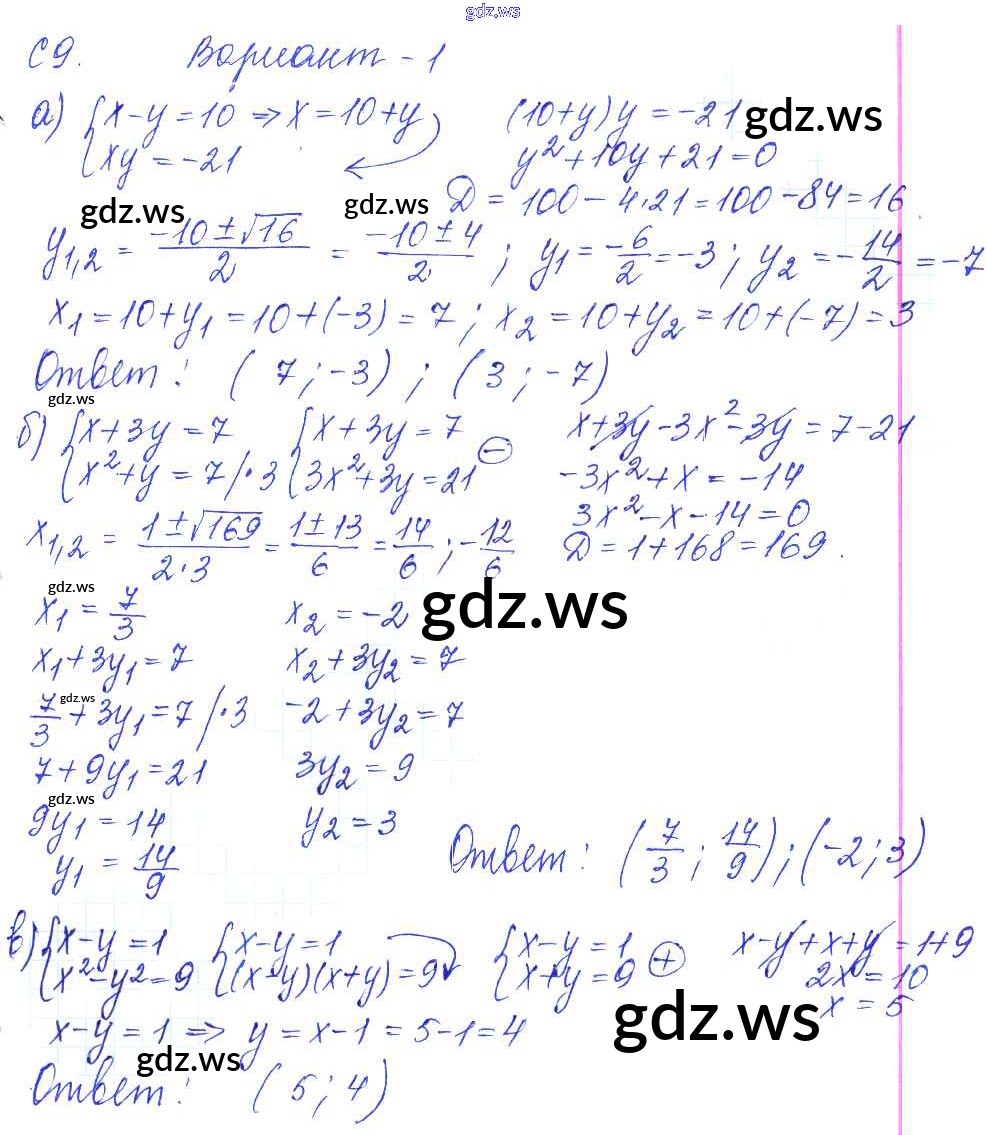 gdz.ws
С9. Вариант - 1
а) {x-y=10 ⇒ x=10+y (10+y)y = -21 gdz.ws
{xy = -21 y²+10y+21=0
gdz.ws gdz.ws D = 100 - 4·21 = 100 - 84 = 16
y1,2 = (-10±√16)/2 = (-10±4)/2 ; y1 = -6/2 = -3 ; y2 = -14/2 = -7
x1 = 10+y1 = 10+(-3) = 7 ; x2 = 10+y2 = 10+(-7) = 3
Ответ: (7; -3) ; (3; -7)
gdz.ws
б) {x+3y = 7 {x+3y = 7 x+3y-3x²-3y = 7-21
{x²+y = 7 /·3 {3x²+3y = 21 ⊖ -3x²+x = -14
3x²-x-14=0
x1,2 = (1±√169)/(2·3) = (1±13)/6 = 14/6 ; -12/6 D = 1+168 = 169.
gdz.ws
x1 = 7/3 x2 = -2 gdz.ws
x1+3y1 = 7 x2+3y2 = 7
gdz.ws
7/3+3y1 = 7 /·3 -2+3y2 = 7
7+9y1 = 21 3y2 = 9
gdz.ws
9y1 = 14 y2 = 3
y1 = 14/9 Ответ: (7/3; 14/9); (-2; 3)
в) {x-y=1 {x-y=1 {x-y=1 x-y+x+y = 1+9
{x²-y²=9 {(x-y)(x+y)=9 {x+y=9 ⊕ 2x = 10
x = 5
x-y=1 ⇒ y = x-1 = 5-1 = 4 gdz.ws
gdz.ws
Ответ: (5; 4)